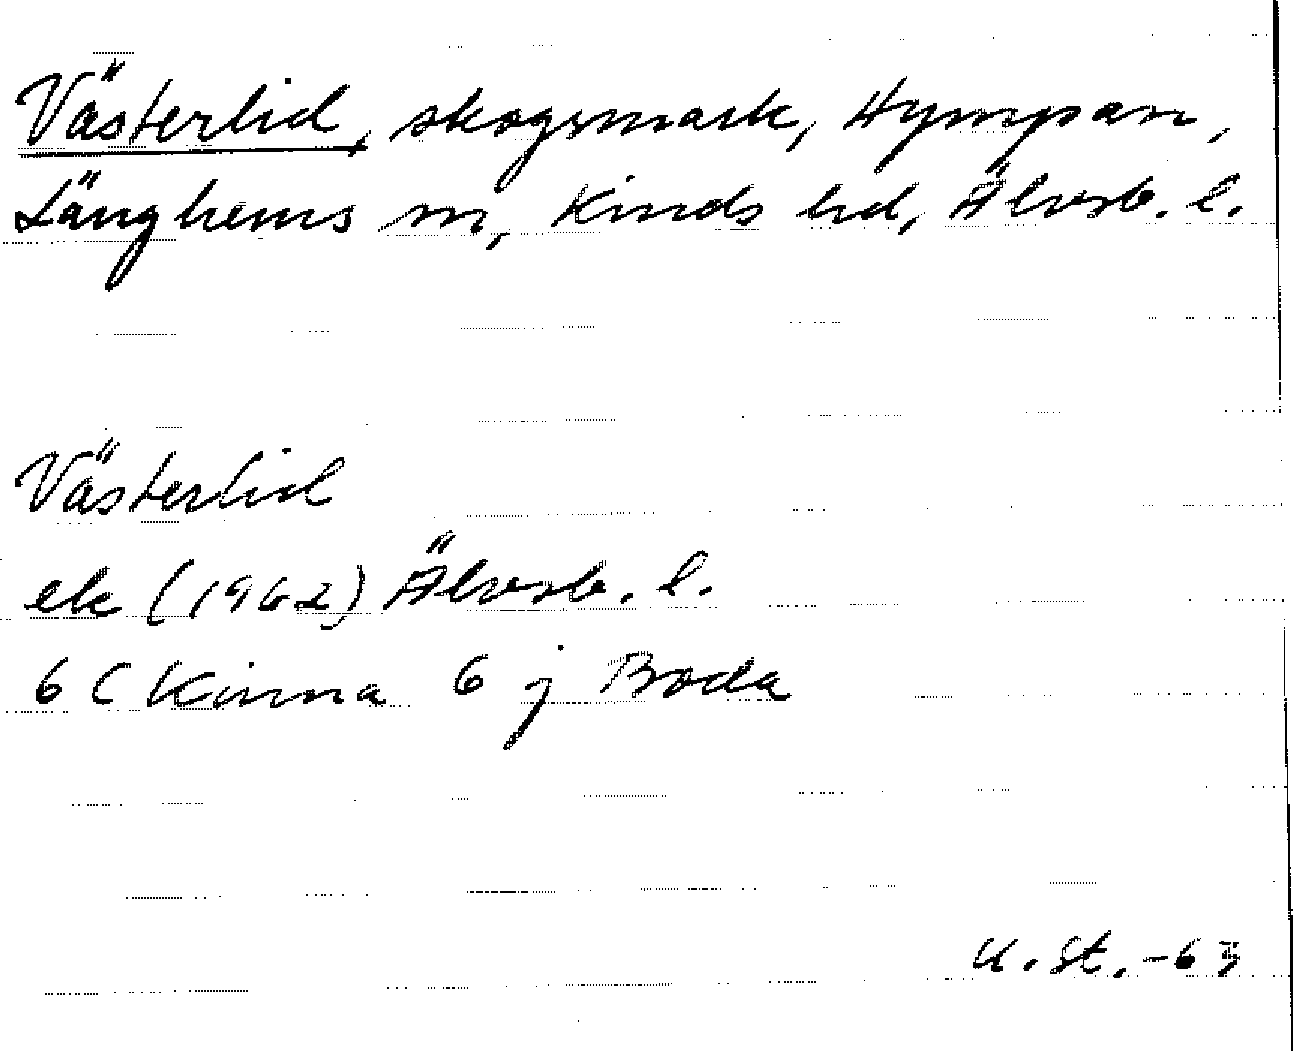 Västerlid, skogsmark, Hympan,
Länghems sn, Kinds hd, Älvsb. l.
Västerlid
ek (1962) Älvsb. l.
6 C Kinna 6 j Boda
U. St. -63